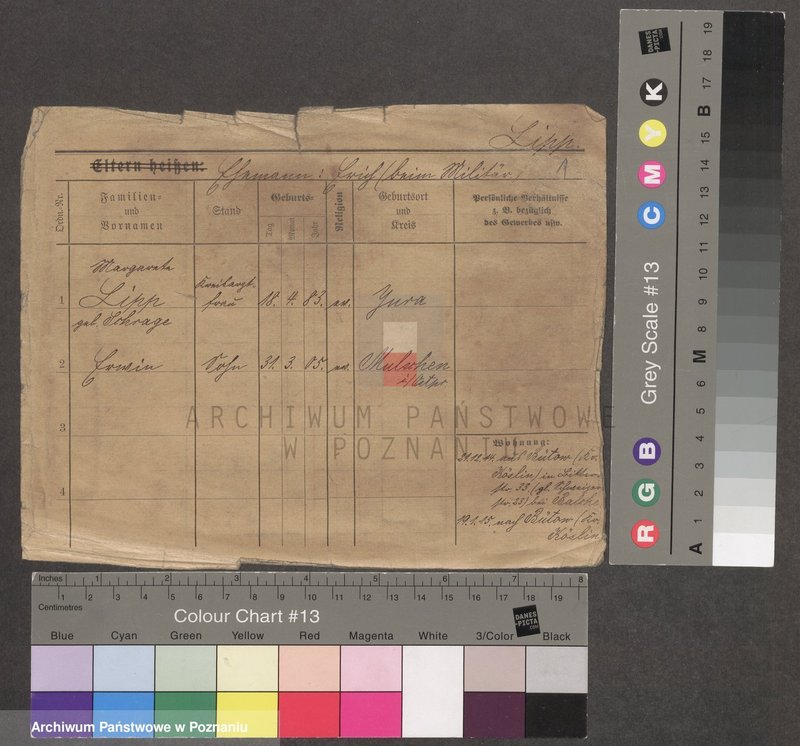 Lipp.
Eltern heißen: Ehemann: Erich (beim Militär)
Ordn.-Nr.
Familien-
und
Vornamen
Stand
Geburts-
Tag
Monat
Jahr
Religion
Geburtsort
und
Kreis
Persönliche Verhältnisse
z. B. bezüglich
des Gewerbes usw.
Margarete
1 Lipp Kreisarzt- 18. 4. 83. ev. Jura
frau
geb. Schrage
2 Erwin Sohn 31. 3. 05. ev. Mulschen
i/Ostpr
3
4
Wohnung:
21.12.14. aus Bütow (Kr.
Köslin) in
str. 33
str 33) bei
19.1.15 nach Bütow (Kr.
Köslin
ARCHIWUM PAŃSTWOWE
W POZNANIU
Inches 1 2 3 4 5 6 7 8
1 2 3 4 5 6 7 8 9 10 11 12 13 14 15 16 17 18 19
Centimetres
Colour Chart #13
DANES
-PICTA
.COM
Blue Cyan Green Yellow Red Magenta White 3/Color Black
Archiwum Państwowe w Poznaniu
Grey Scale #13
R G B C M Y K
DANES
-PICTA
.COM
A 1 2 3 4 5 6 M 8 9 10 11 12 13 14 15 B 17 18 19